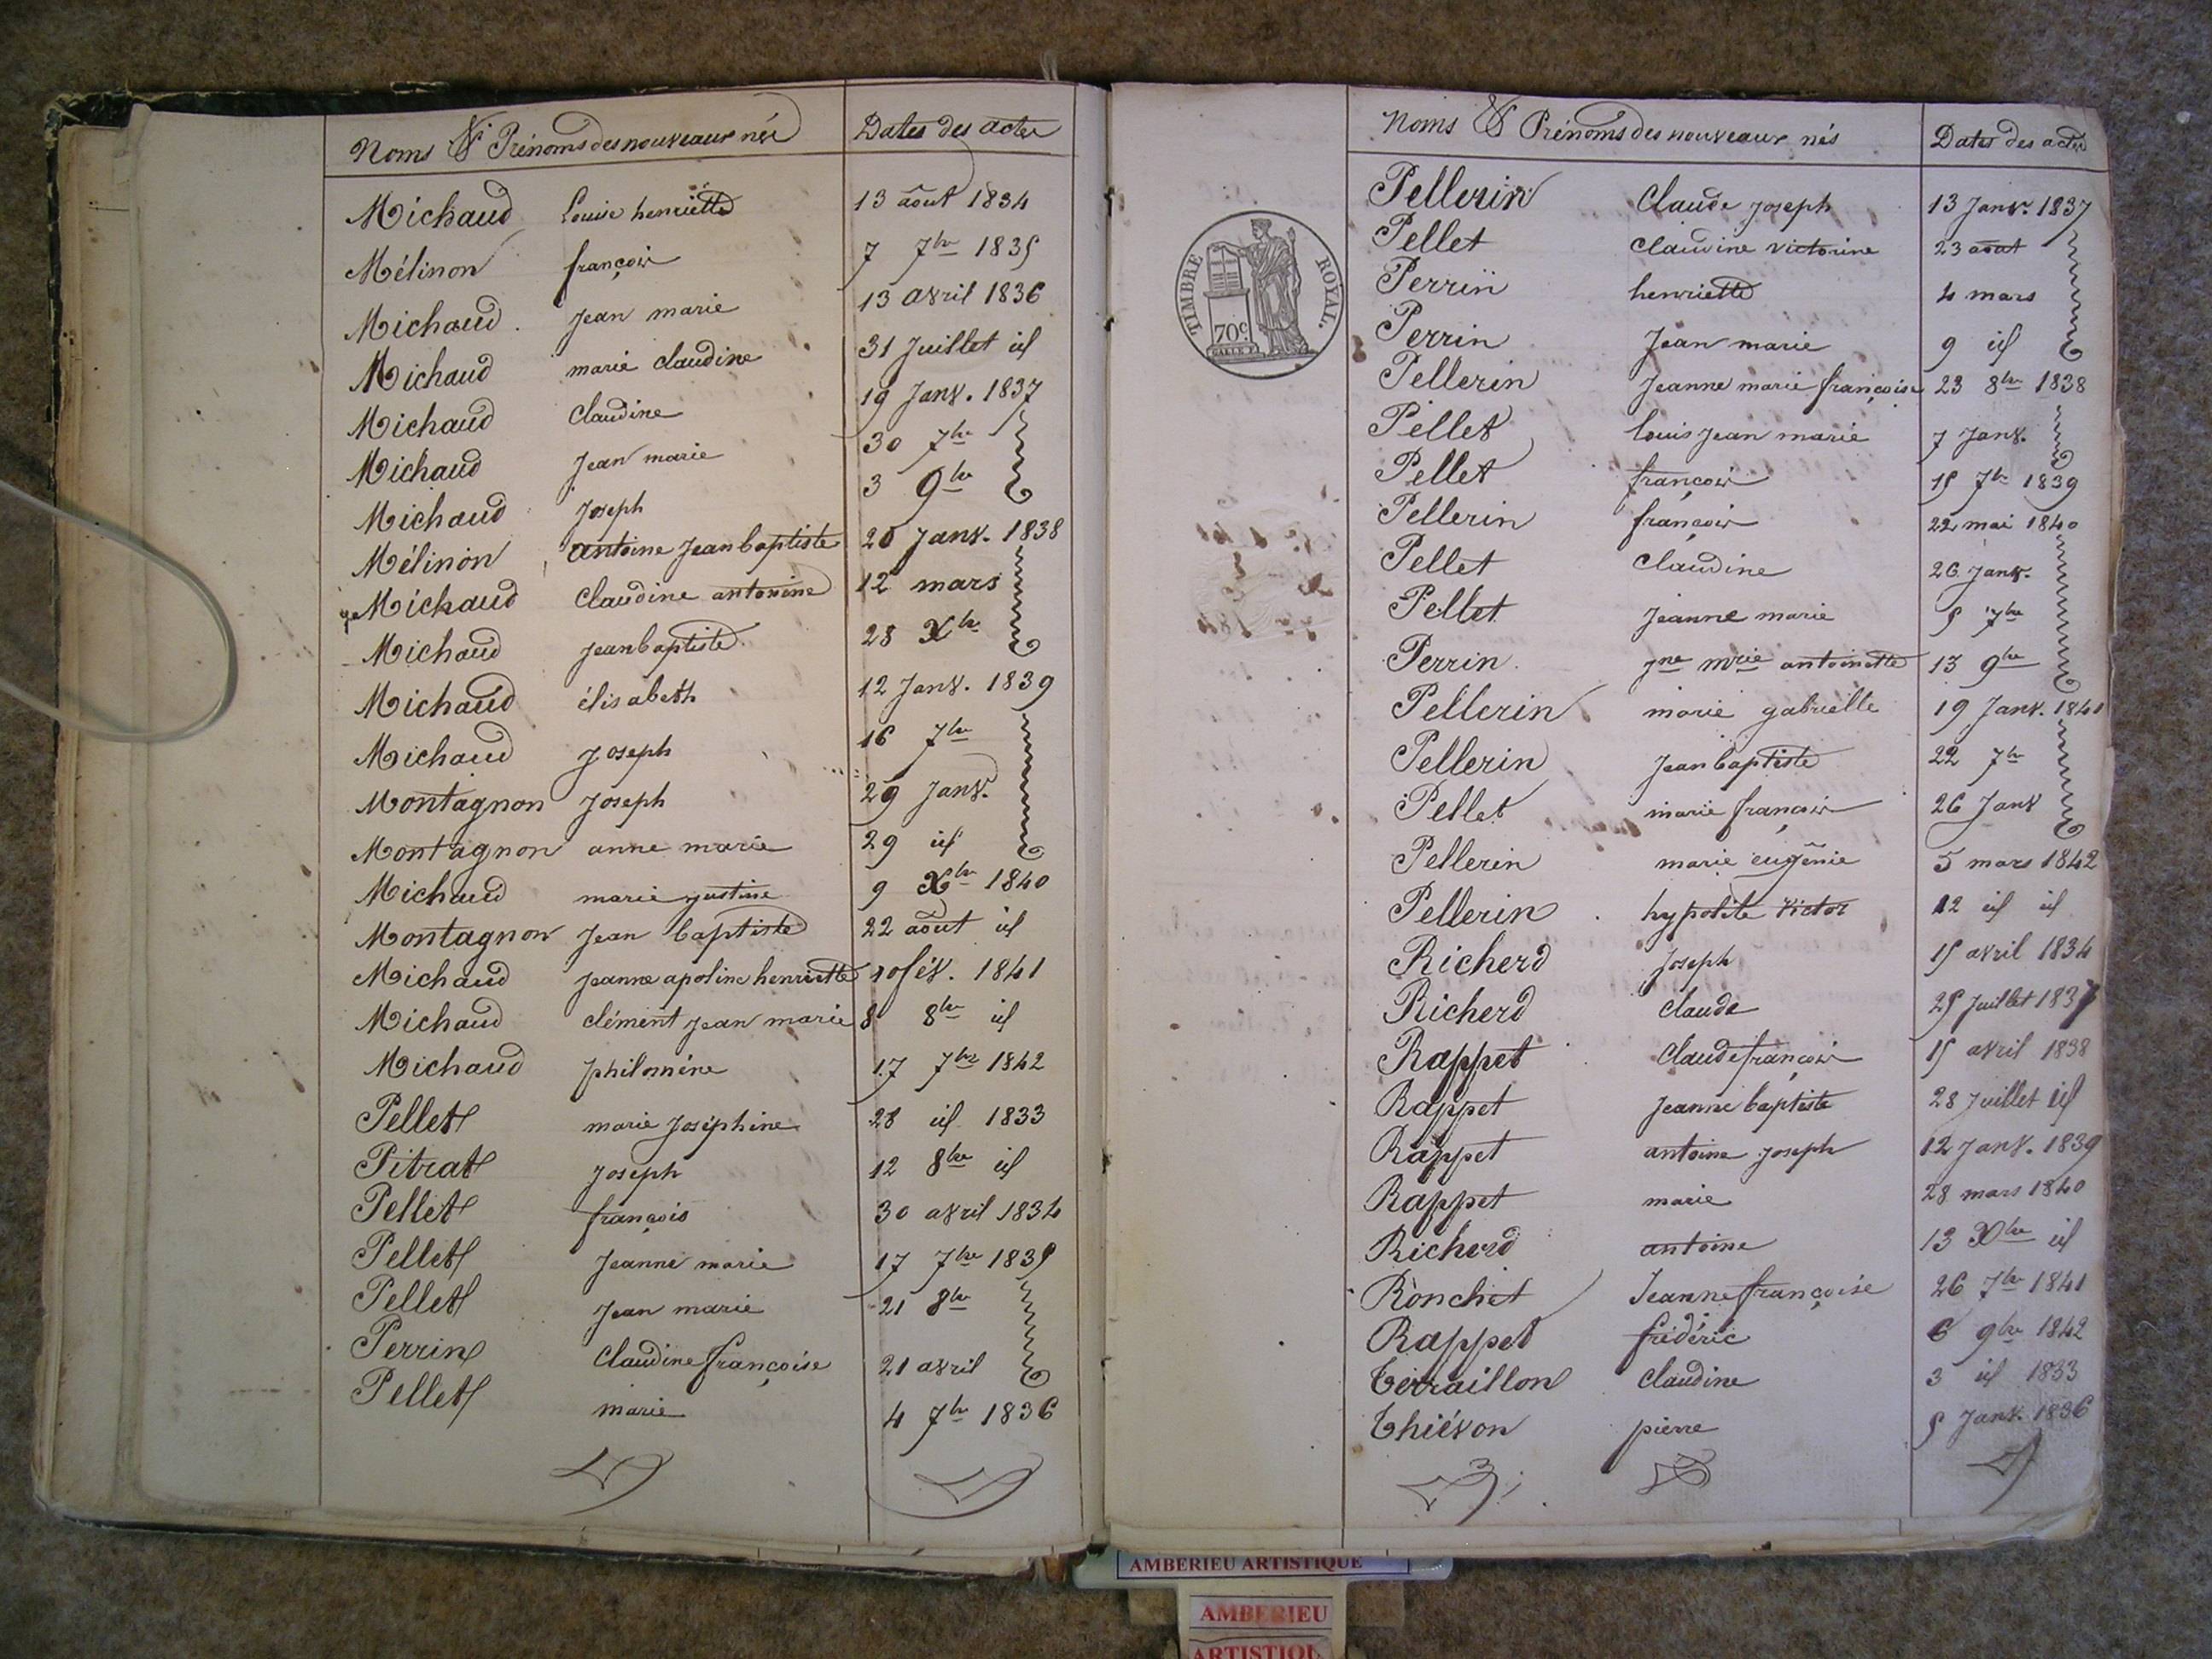 Noms & Prénoms des nouveaux nés Dates des actes
Michaud Louise henriette 13 août 1834
Mélinon françois 7 7bre 1835
Michaud Jean marie 13 avril 1836
Michaud marie claudine 31 Juillet id
Michaud Claudine 19 Janv. 1837
Michaud Jean marie 30 7bre
Michaud Joseph 3 9bre
Mélinon antoine Jean baptiste 20 Janv. 1838
Michaud Claudine antonine 12 mars
Michaud Jean baptiste 28 Xbre
Michaud élisabeth 12 Janv. 1839
Michaud Joseph 16 7bre
Montagnon Joseph 29 Janv.
Montagnon anne marie 29 id
Michaud marie justine 9 Xbre 1840
Montagnon Jean baptiste 22 août id
Michaud Jeanne apoline henriette 10 fév. 1841
Michaud clément Jean marie 8 8bre id
Michaud philomène 17 7bre 1842
Pellet marie Joséphine 28 id 1833
Pitrat Joseph 12 8bre id
Pellet françois 30 avril 1834
Pellet Jeanne marie 17 7bre 1835
Pellet Jean marie 21 8bre
Perrin Claudine françoise 21 avril
Pellet marie 4 7bre 1836
TIMBRE ROYAL.
70c
Noms & Prénoms des nouveaux nés Dates des actes
Pellerin Claude Joseph 13 Janv. 1837
Pellet Claudine victorine 23 août
Perrin henriette 4 mars
Perrin Jean marie 9 id
Pellerin Jeanne marie françoise 23 8bre 1838
Pellet louis Jean marie 7 Janv.
Pellet françois 15 7bre 1839
Pellerin françois 22 mai 1840
Pellet Claudine 26 Janv.
Pellet Jeanne marie 5 7bre
Perrin Jne mrie antoinette 13 9bre
Pellerin marie gabrielle 19 Janv. 1841
Pellerin Jean baptiste 22 7bre
Pellet marie françois 26 Janv
Pellerin marie eugénie 5 mars 1842
Pellerin hypolite victor 12 id id
Richerd Joseph 15 avril 1834
Richerd Claude 25 Juillet 1837
Rappet Claude françois 15 avril 1838
Rappet Jeanne baptiste 28 Juillet id
Rappet antoine Joseph 12 Janv. 1839
Rappet marie 28 mars 1840
Richerd antoine 13 Xbre id
Ronchet Jeanne françoise 26 7bre 1841
Rappet frédéric 6 9bre 1842
Terraillon Claudine 3 id 1833
Thiévon pierre 5 Janv. 1836
AMBERIEU ARTISTIQUE
AMBERIEU
ARTISTIQU